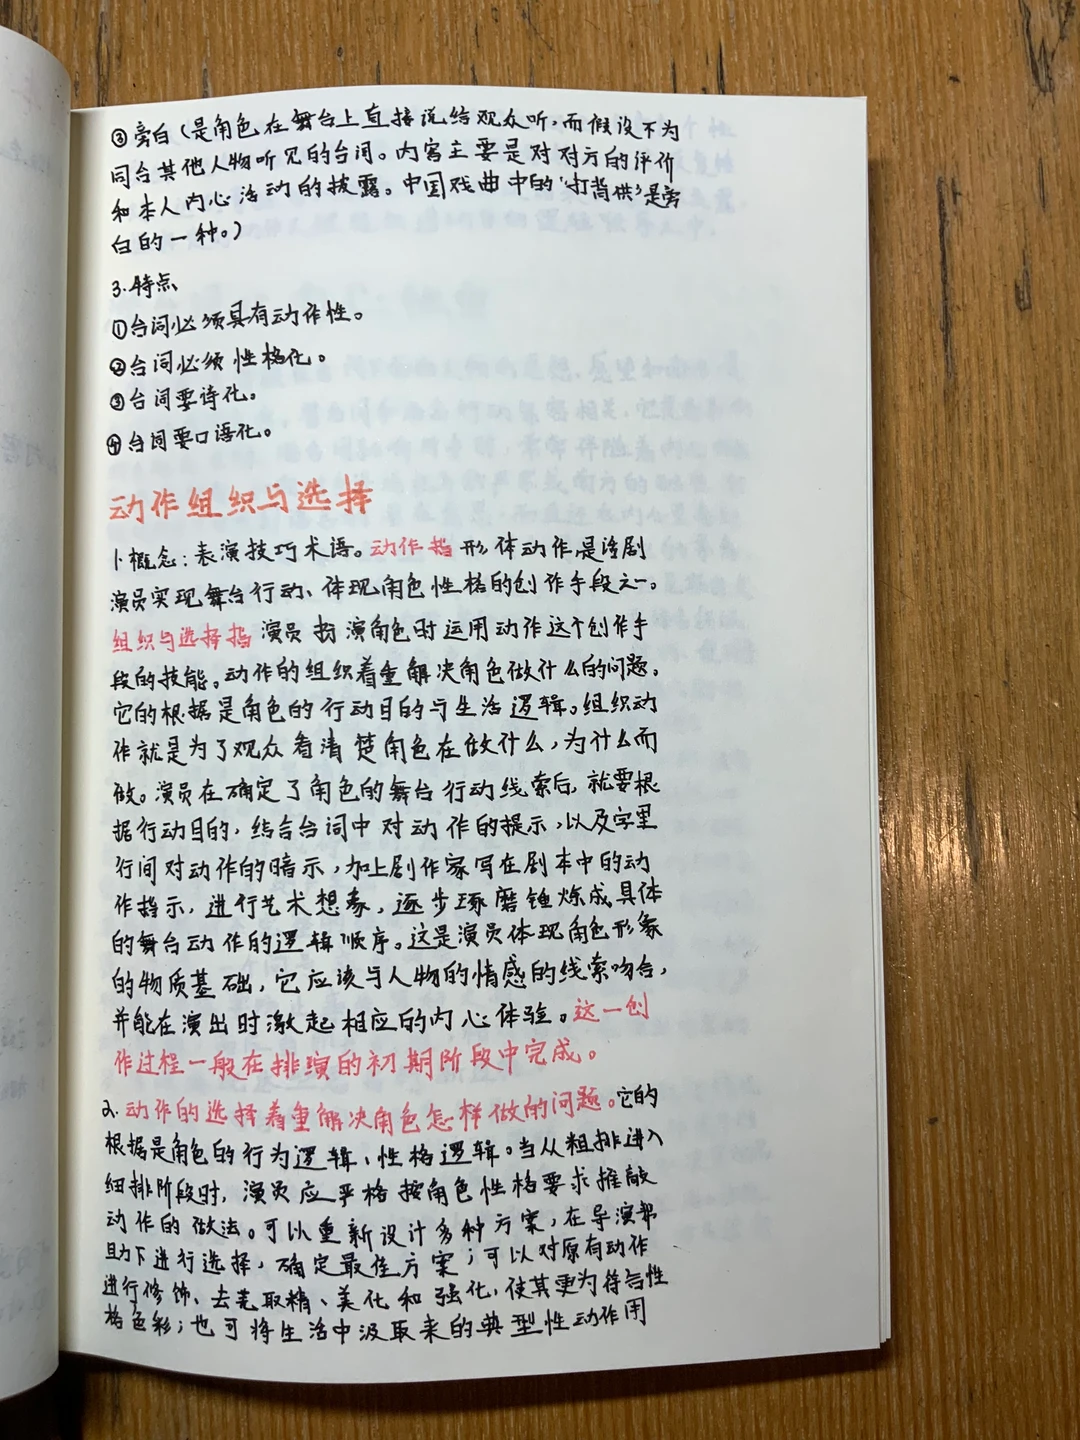 ③旁白(是角色在舞台上直接说给观众听,而假设不为
同台其他人物听见的台词。内容主要是对对方的评价
和本人内心活动的披露。中国戏曲中的“打背供”是旁
白的一种。)
3.特点
①台词必须具有动作性。
②台词必须性格化。
③台词要诗化。
④台词要口语化。
动作组织与选择
1.概念:表演技巧术语。动作指形体动作,是话剧
演员实现舞台行动、体现角色性格的创作手段之一。
组织与选择指演员扮演角色时运用动作这个创作手
段的技能。动作的组织着重解决角色做什么的问题。
它的根据是角色的行动目的与生活逻辑。组织动
作就是为了观众看清楚角色在做什么,为什么而
做。演员在确定了角色的舞台行动线索后,就要根
据行动目的,结合台词中对动作的提示,以及字里
行间对动作的暗示,加上剧作家写在剧本中的动
作指示,进行艺术想象,逐步琢磨锤炼成具体
的舞台动作的逻辑顺序。这是演员体现角色形象
的物质基础,它应该与人物的情感的线索吻合,
并能在演出时激起相应的内心体验。这一创
作过程一般在排演的初期阶段中完成。
2.动作的选择着重解决角色怎样做的问题。它的
根据是角色的行为逻辑、性格逻辑。当从粗排进入
细排阶段时,演员应严格按角色性格要求推敲
动作的做法。可以重新设计多种方案,在导演帮
助下进行选择,确定最佳方案;可以对原有动作
进行修饰、去芜取精、美化和强化,使其更为符合性
格色彩;也可将生活中汲取来的典型性动作用